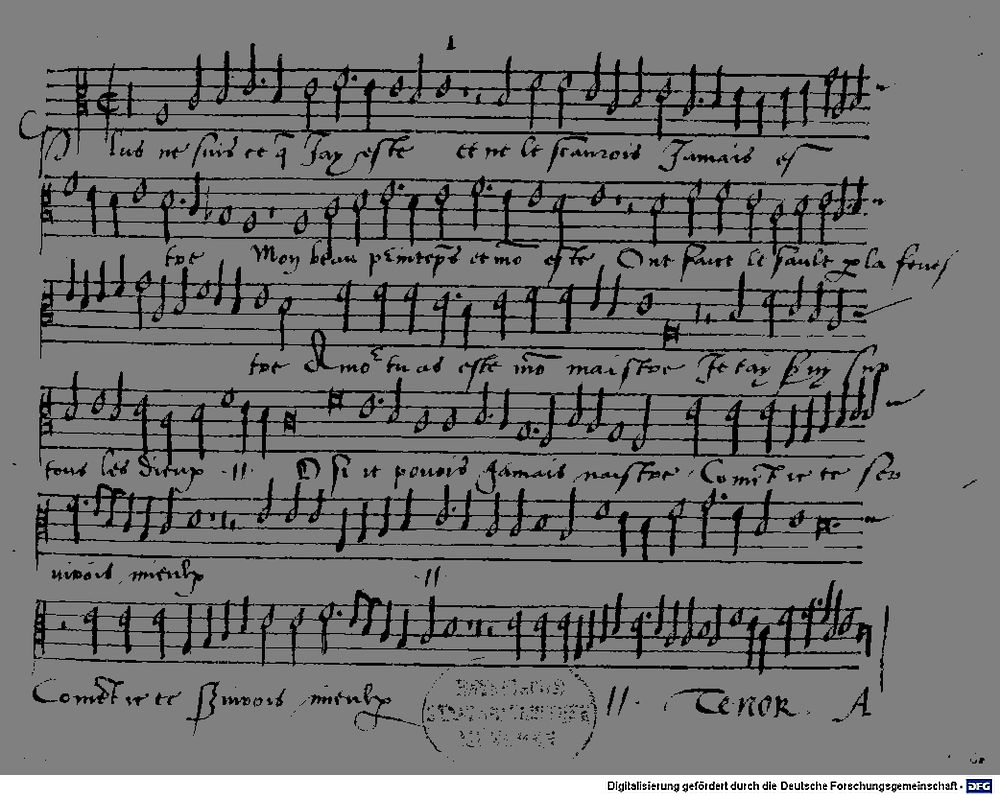 1
Plus ne suis ce q̃ Jay este et ne le scaurois Jamais es
tre Mon beau printẽps et mõ este Ont faict le sault p la fenes
tre Amor tu as este mõ maistre Je tay seruy sur
tous les dieux .||. O si ie pouois Jamais naistre Comẽt ie te ser
uirois mieulx .||.
Comẽt ie te seruirois mieulx ||. Tenor. A
Digitalisierung gefördert durch die Deutsche Forschungsgemeinschaft - DFG